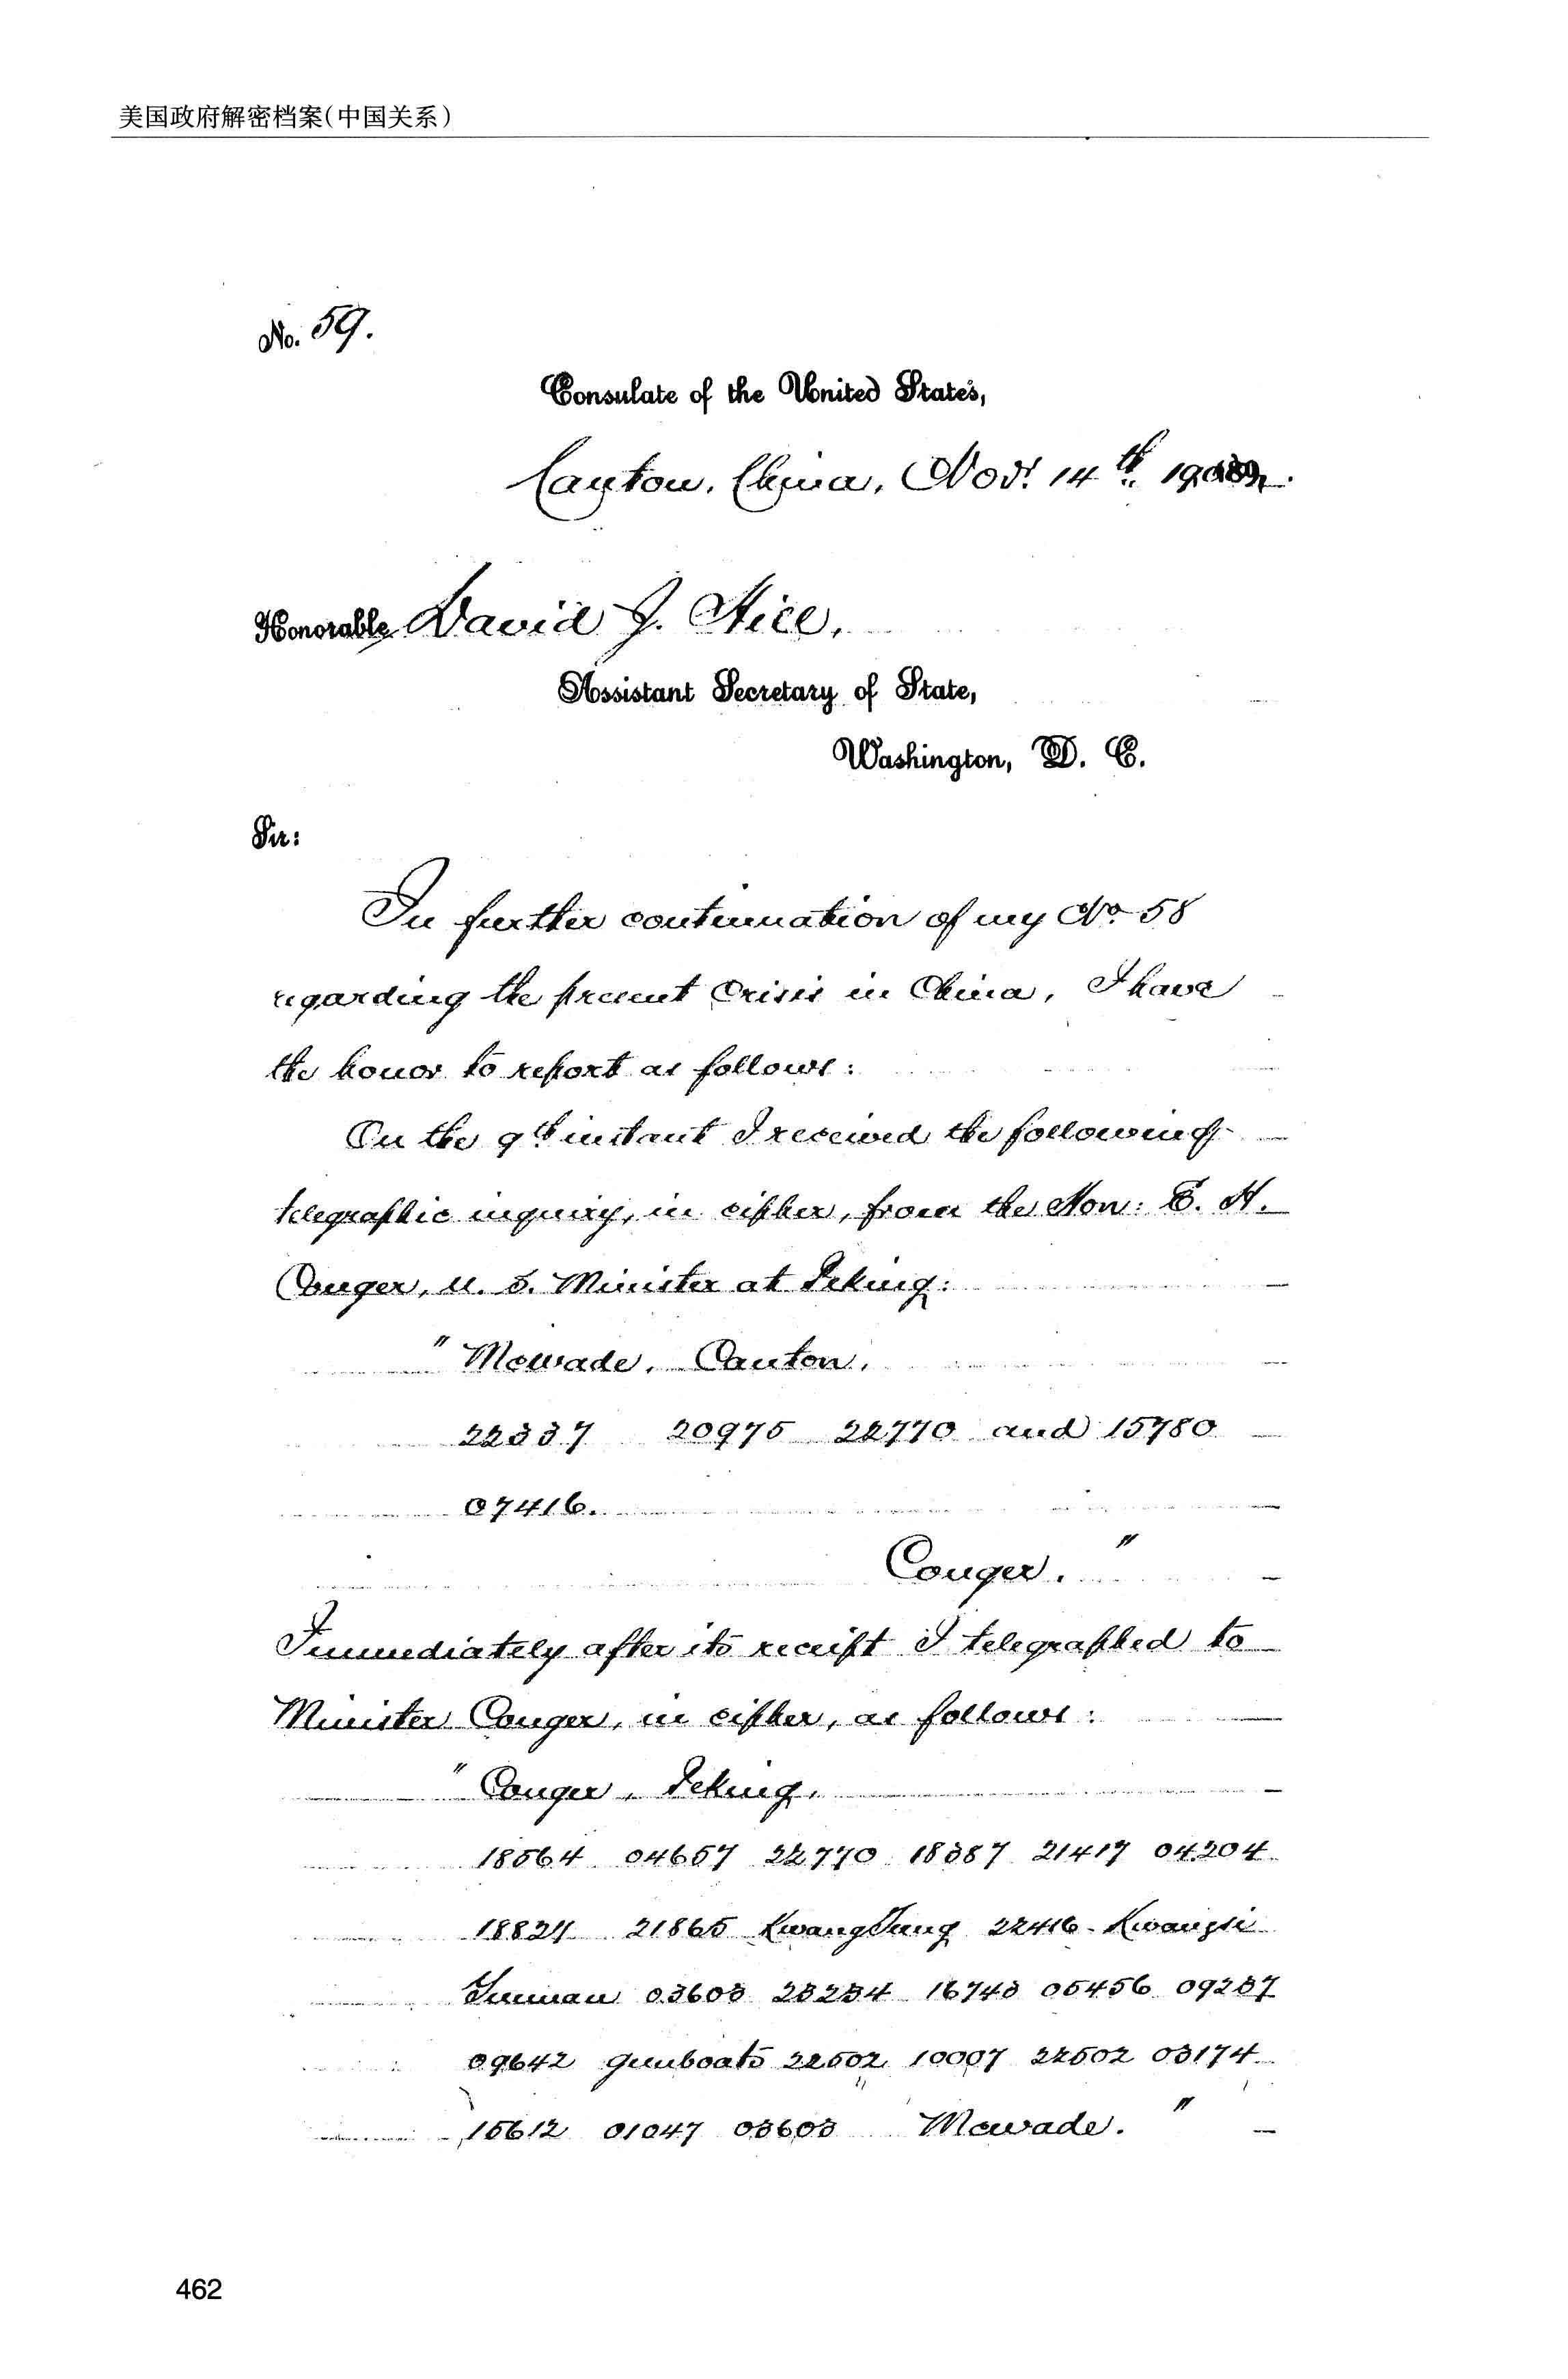 美国政府解密档案(中国关系)
No. 59.
Consulate of the United States,
Canton, China, Nov! 14th, 190
Honorable David J. Hill,
Assistant Secretary of State,
Washington, D. C.
Sir:
In further continuation of my No 58
regarding the present Crisis in China, I have
the honor to report as follows:
On the 9th instant I received the following
telegraphic inquiry, in cipher, from the Hon: E. H.
Conger, U. S. Minister at Peking:
" McWade, Canton,
22337 20975 22770 and 15780
07416.
Conger. "
Immediately after its receipt I telegraphed to
Minister Conger, in cipher, as follows:
" Conger, Peking,
18564 04657 22770 18387 21417 04204
18824 21865 KwangTung 22416 - Kwangsi
Yunnan 03603 23234 16743 05456 09237
09642 gunboats 22502 10007 22502 03174
15612 01047 03603 McWade. "
462